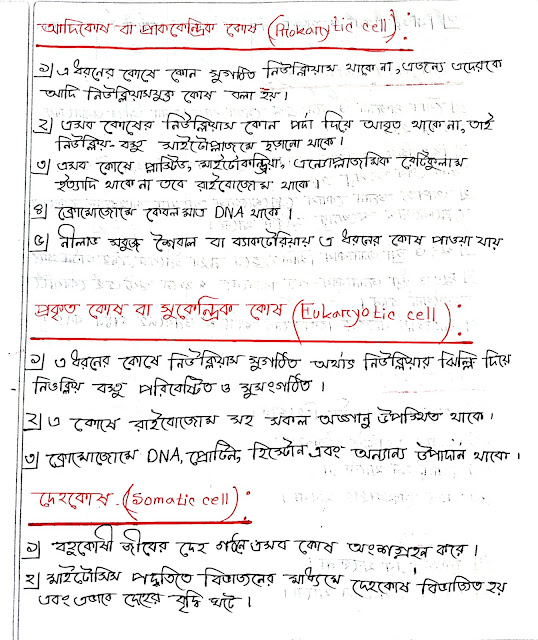 আদিকোষ বা প্রাককেন্দ্রিক কোষ (Prokaryotic cell):
১) এ ধরনের কোষে কোন সুগঠিত নিউক্লিয়াস থাকে না, এজন্যে এদেরকে
আদি নিউক্লিয়াসযুক্ত কোষ বলা হয়।
২) এসব কোষের নিউক্লিয়াস কোন পর্দা দিয়ে আবৃত থাকে না, তাই
নিউক্লিয়-বস্তু সাইটোপ্লাজমে ছড়ানো থাকে।
৩) এসব কোষে প্লাস্টিড, মাইটোকন্ড্রিয়া, এন্ডোপ্লাজমিক রেটিকুলাম
ইত্যাদি থাকে না তবে রাইবোজোম থাকে।
৪) ক্রোমোজোমে কেবল মাত্র DNA থাকে।
৫) নীলাভ সবুজ শৈবাল বা ব্যাকটেরিয়ায় এ ধরনের কোষ পাওয়া যায়
প্রকৃত কোষ বা সুকেন্দ্রিক কোষ (Eukaryotic cell):
১) এ ধরনের কোষে নিউক্লিয়াস সুগঠিত অর্থাৎ নিউক্লিয়ার ঝিল্লি দিয়ে
নিউক্লিয় বস্তু পরিবেষ্টিত ও সুসংগঠিত।
২) এ কোষে রাইবোজোম সহ সকল অঙ্গাণু উপস্থিত থাকে।
৩) ক্রোমোজোমে DNA, প্রোটিন, হিস্টোন এবং অন্যান্য উপাদান থাকে।
দেহকোষ (Somatic cell):
১) বহুকোষী জীবের দেহ গঠনে এসব কোষ অংশগ্রহন করে।
২) মাইটোসিস পদ্ধতিতে বিভাজনের মাধ্যমে দেহকোষ বিভাজিত হয়
এবং এভাবে দেহের বৃদ্ধি ঘটে।